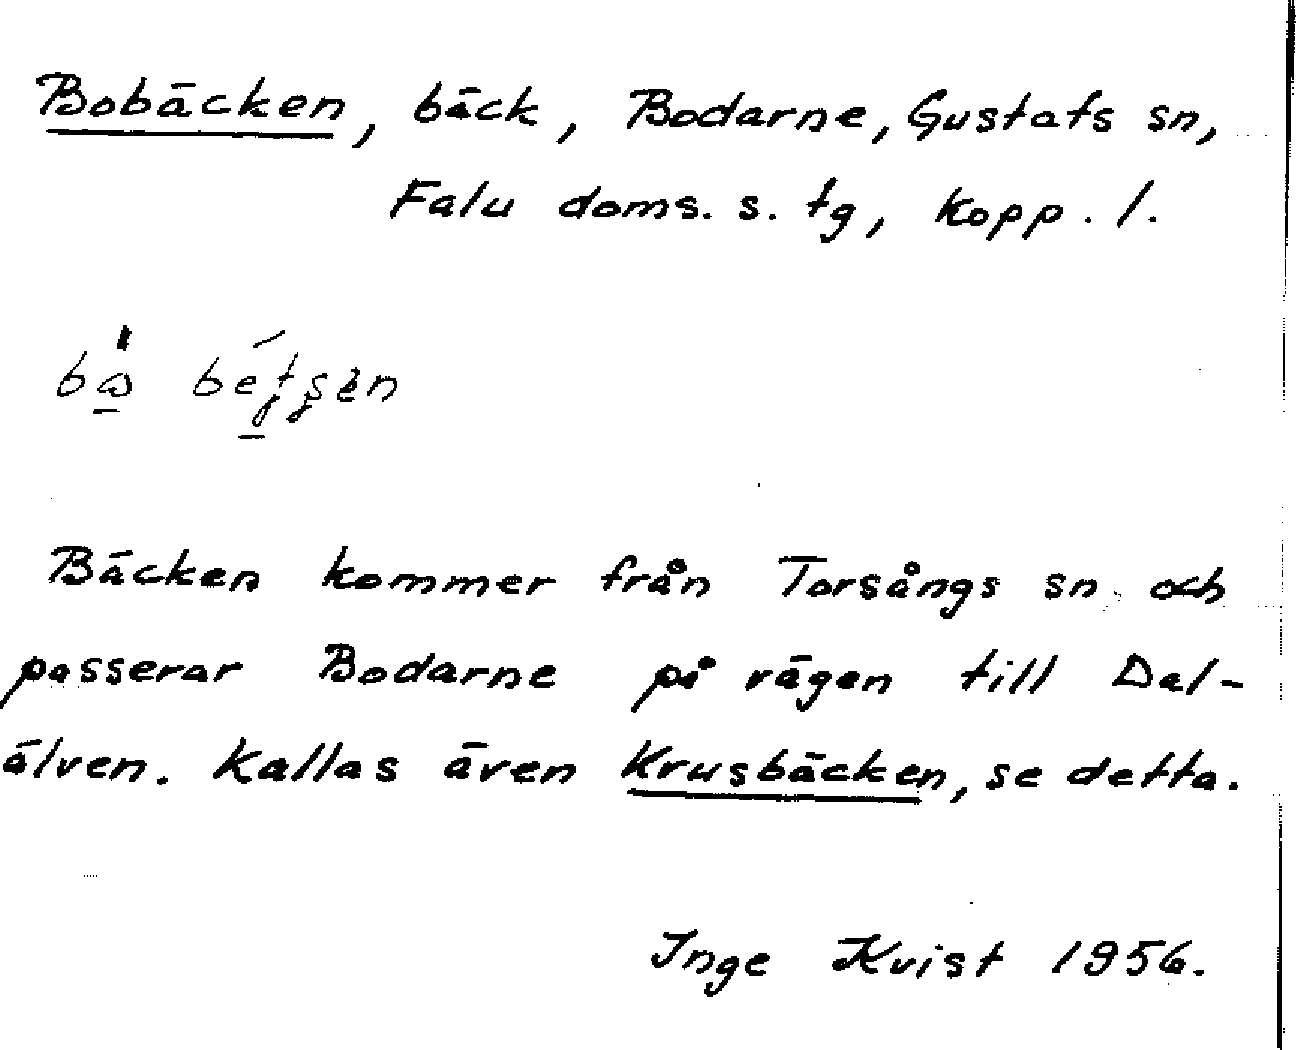 Bobäcken, bäck, Bodarne, Gustafs sn,
Falu doms. s. tg, Kopp. l.
Bäcken kommer från Torsångs sn och
passerar Bodarne på vägen till Dal-
älven. Kallas även Krusbäcken, se detta.
Inge Kvist 1956.